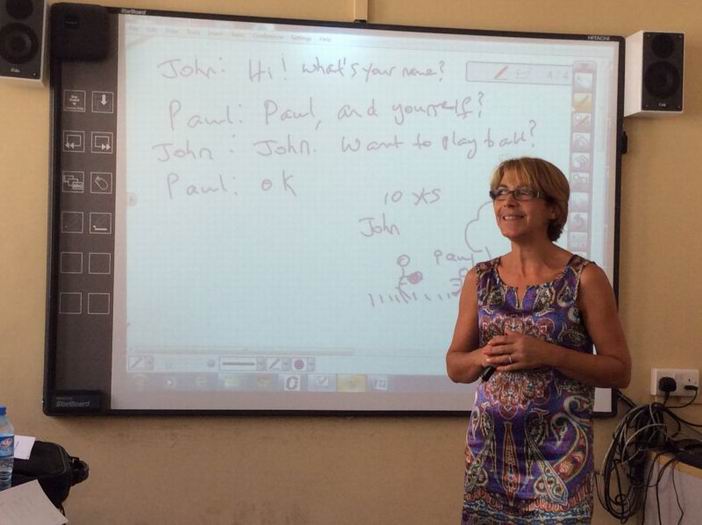 StarBoard
HITACHI
John: Hi! What's your name?
Paul: Paul, and yourself?
John: John. Want to play ball?
Paul: OK
10 yrs
John
Paul
StarBoard